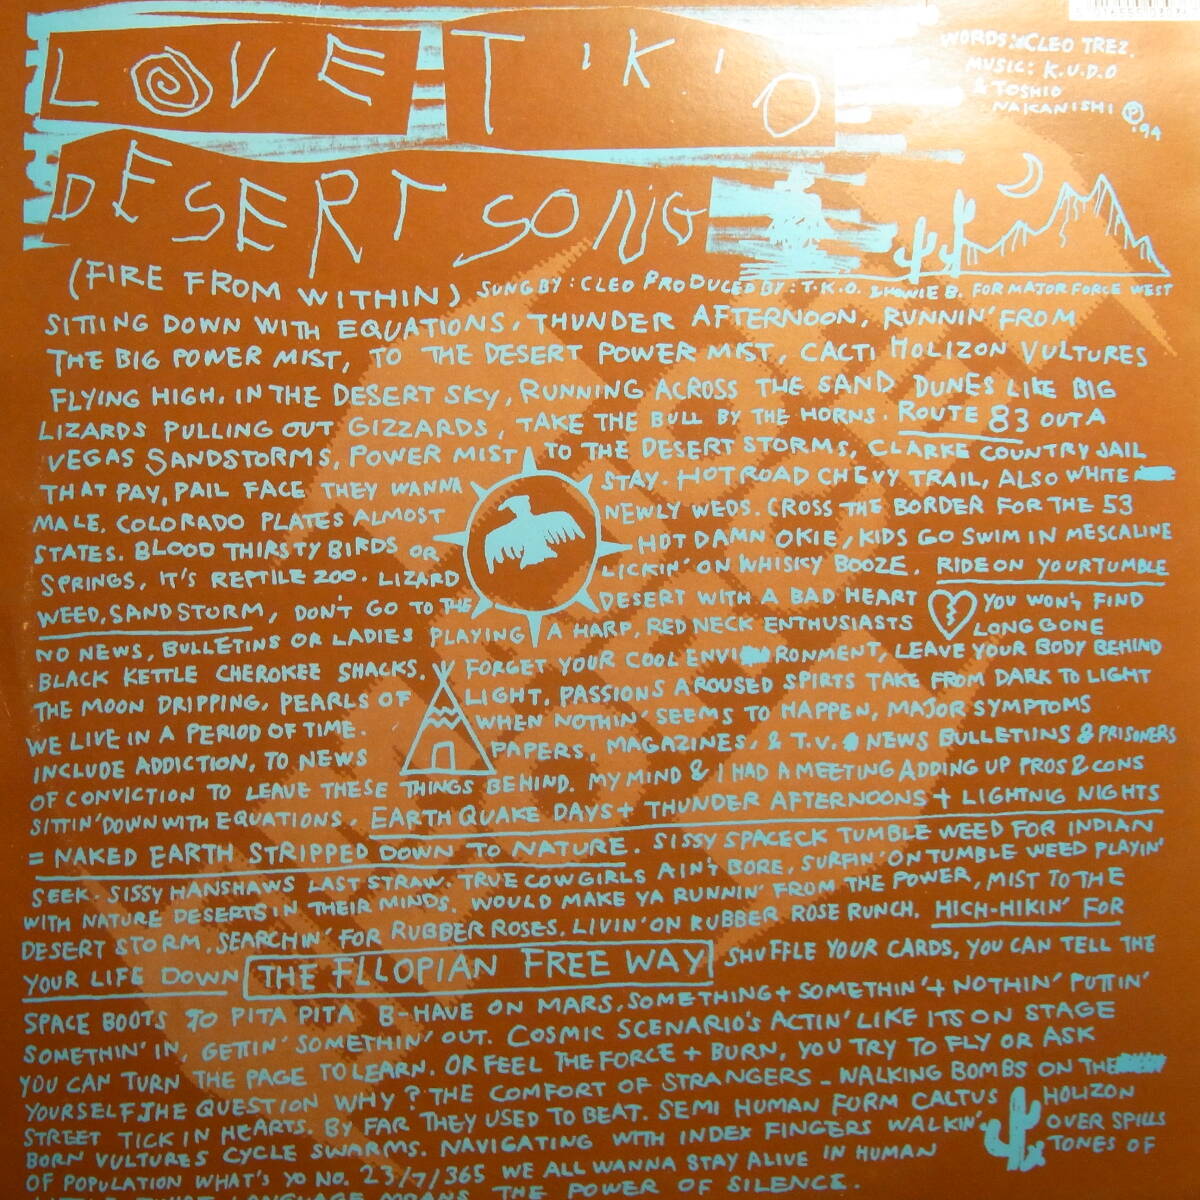 LOVE T.K.O
WORDS: CLEO TREZ.
MUSIC: K.U.D.O
& TOSHIO
NAKANISHI Ⓟ
.94
DESERT SONG
(FIRE FROM WITHIN) SUNG BY: CLEO PRODUCED BY: T.K.O. & HOWIE B. FOR MAJOR FORCE WEST
SITTING DOWN WITH EQUATIONS, THUNDER AFTERNOON, RUNNIN' FROM
THE BIG POWER MIST, TO THE DESERT POWER MIST, CACTI HOLIZON VULTURES
FLYING HIGH. IN THE DESERT SKY, RUNNING ACROSS THE SAND DUNES LIKE BIG
LIZARDS PULLING OUT GIZZARDS, TAKE THE BULL BY THE HORNS. ROUTE 83 OUT A
VEGAS SANDSTORMS, POWER MIST TO THE DESERT STORMS, CLARKE COUNTRY JAIL
THAT PAY, PAIL FACE THEY WANNA STAY. HOT ROAD CHEVY TRAIL, ALSO WHITE
MALE, COLORADO PLATES ALMOST NEWLY WEDS. CROSS THE BORDER FOR THE 53
STATES. BLOOD THIRSTY BIRDS OR HOT DAMN OKIE, KIDS GO SWIM IN MESCALINE
SPRINGS, IT'S REPTILE ZOO. LIZARD LICKIN' ON WHISKY BOOZE. RIDE ON YOUR TUMBLE
WEED, SAND STORM, DON'T GO TO THE DESERT WITH A BAD HEART YOU WON'T FIND
NO NEWS, BULLETINS OR LADIES PLAYING A HARP, RED NECK ENTHUSIASTS LONG GONE
BLACK KETTLE CHEROKEE SHACKS. FORGET YOUR COOL ENVIRONMENT, LEAVE YOUR BODY BEHIND
THE MOON DRIPPING, PEARLS OF LIGHT, PASSIONS AROUSED SPIRTS TAKE FROM DARK TO LIGHT
WE LIVE IN A PERIOD OF TIME. WHEN NOTHIN. SEEMS TO HAPPEN, MAJOR SYMPTOMS
INCLUDE ADDICTION, TO NEWS PAPERS, MAGAZINES, & T.V. NEWS BULLETIINS & PRISONERS
OF CONVICTION TO LEAVE THESE THINGS BEHIND. MY MIND & I HAD A MEETING ADDING UP PROS & CONS
SITTIN' DOWN WITH EQUATIONS. EARTH QUAKE DAYS + THUNDER AFTERNOONS + LIGHTNIG NIGHTS
= NAKED EARTH STRIPPED DOWN TO NATURE. SISSY SPACECK TUMBLE WEED FOR INDIAN
SEEK. SISSY HANSHAWS LAST STRAW. TRUE COWGIRLS AIN'T BORE, SURFIN' ON TUMBLE WEED PLAYIN'
WITH NATURE DESERTS IN THEIR MINDS. WOULD MAKE YA RUNNIN' FROM THE POWER, MIST TO THE
DESERT STORM. SEARCHIN' FOR RUBBER ROSES. LIVIN' ON RUBBER ROSE RUNCH. HICH-HIKIN' FOR
YOUR LIFE DOWN THE FLLOPIAN FREE WAY SHUFFLE YOUR CARDS, YOU CAN TELL THE
SPACE BOOTS TO PITA PITA B-HAVE ON MARS. SOMETHING + SOMETHIN' + NOTHIN' PUTTIN'
SOMETHIN' IN, GETTIN' SOMETHIN' OUT. COSMIC SCENARIO'S ACTIN' LIKE ITS ON STAGE
YOU CAN TURN THE PAGE TO LEARN. OR FEEL THE FORCE + BURN, YOU TRY TO FLY OR ASK
YOURSELF THE QUESTION WHY? THE COMFORT OF STRANGERS - WALKING BOMBS ON THE
STREET TICK IN HEARTS. BY FAR THEY USED TO BEAT. SEMI HUMAN FORM CALTUS HOLIZON
BORN VULTURES CYCLE SWARMS. NAVIGATING WITH INDEX FINGERS WALKIN' OVER SPILLS
OF POPULATION WHAT'S YO NO. 23/7/365 WE ALL WANNA STAY ALIVE IN HUMAN TONES OF
LANGUAGE MEANS THE POWER OF SILENCE.